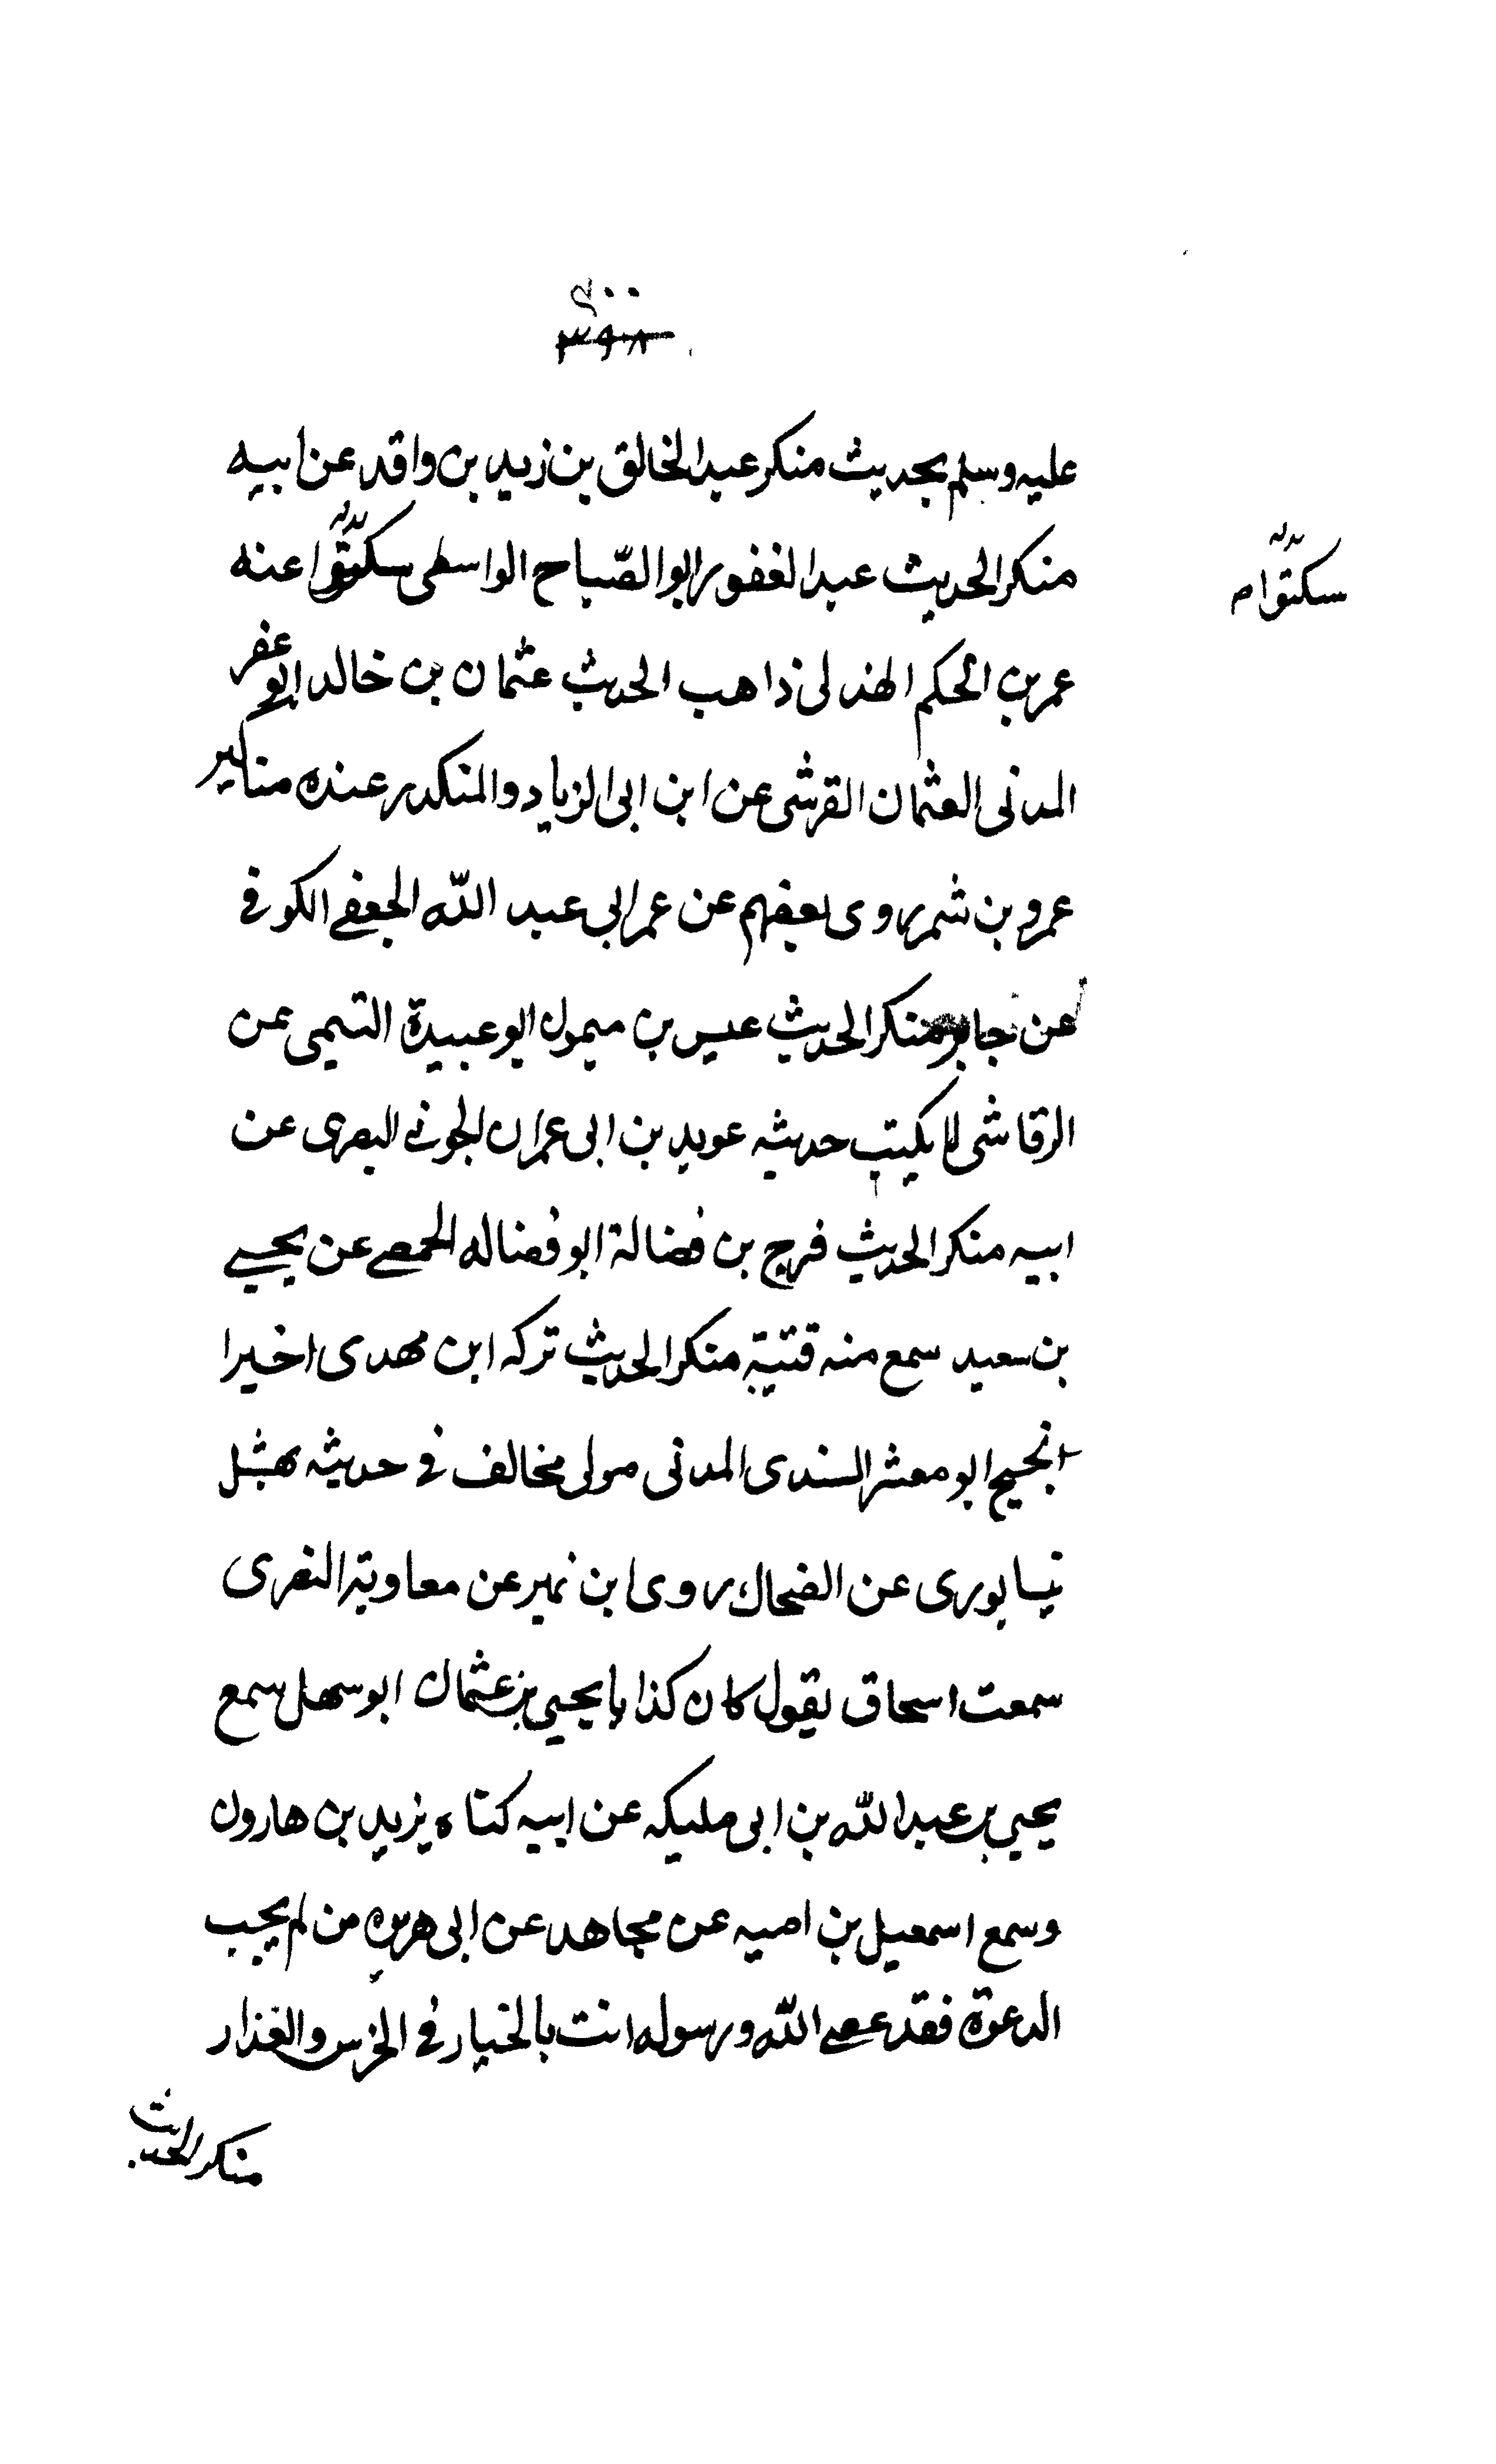 ٤٠٠
٣٩٨
عليه وسلم بحديث منكر عبد الخالق بن زيد بن واقد عن ابيه
منكر الحديث عبد الغفور ابو الصّباح الواسطى سكتوا عنه
سكتوا
عمر بن الحكم الهذلى ذاهب الحديث عثمان بن خالد ابو عفر
المدنى العثمان القرشى عن ابن ابى الزياد والمنكدر عنده مناكير
عمرو بن شمر روى بعضهم عن عمر ابى عبد اللّه الجعفے الكوفے
عن جابر منكر الحديث عيس بن ميمون ابو عبيدة التيمى عن
الرقاشى لا يكتب حديثه عويد بن ابى عمران الجونے البصرى عن
ابيه منكر الحديث فرج بن فضالة ابو فضاله الحمصے عن يحيے
بن سعيد سمع منه قتيبة منكر الحديث تركه ابن مهدى اخيرا
نجيح ابو معشر السندى المدنى مولى مخالف فے حديثه نهشل
نيسابورى عن الضحاك روى ابن نمير عن معاوية النصرى
سمعت اسحاق يقول كان كذابا يحيى بن عثمان ابو سهل سمع
يحيى بن عبد اللّه بن ابى مليكه عن ابيه كناه يزيد بن هارون
وسمع اسمعيل بن اميه عن مجاهد عن ابى هريره من لم يجب
الدعوة فقد عصے اللّه ورسوله انت بالخيار فے الخرس والغذار
منكر الحديث